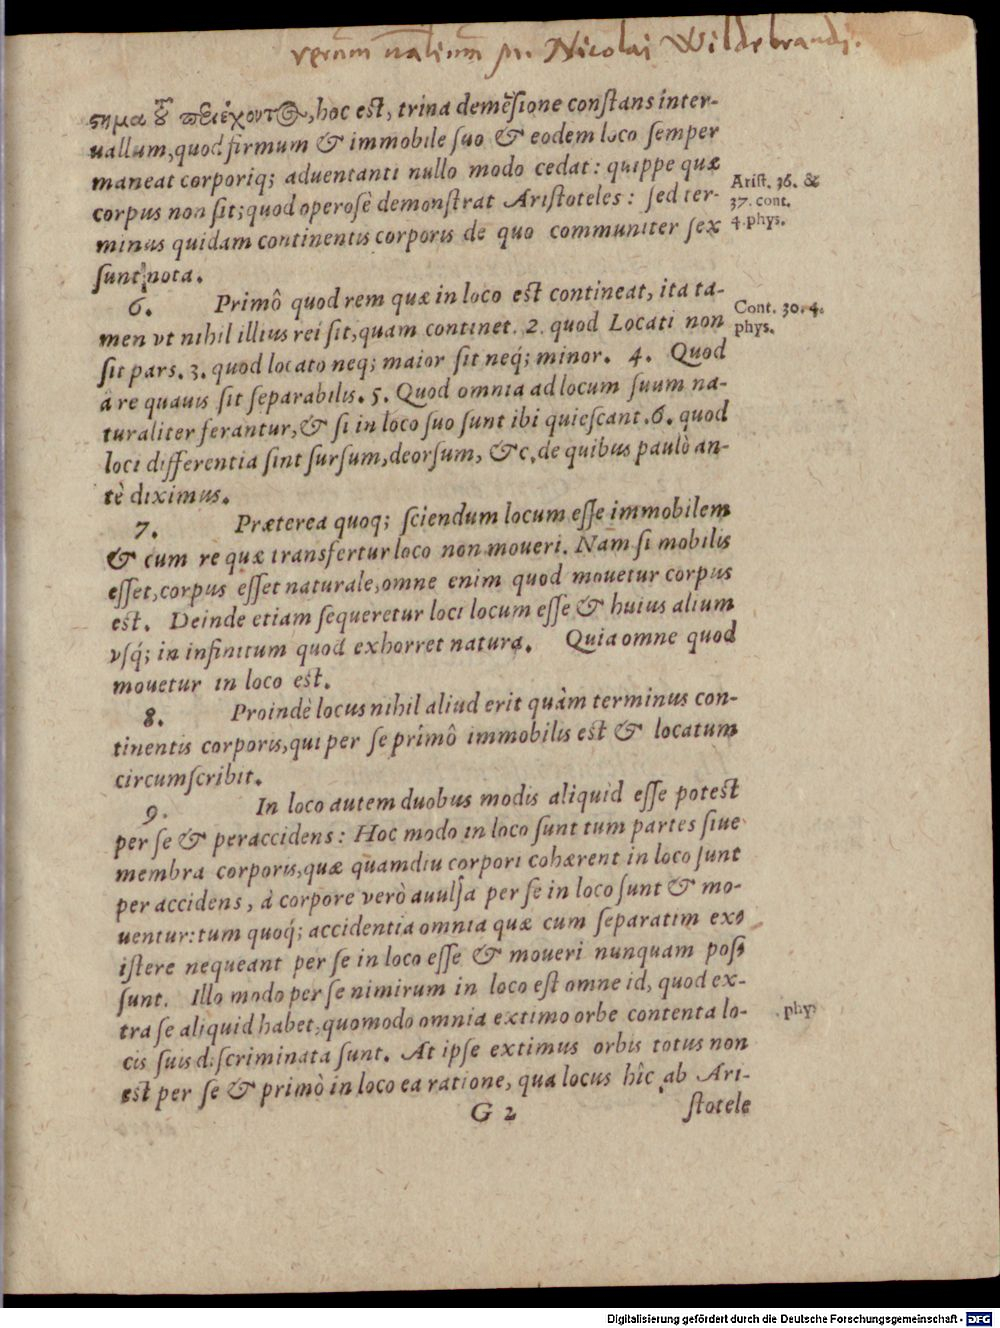 verum natium m. Nicolai Wildebrandi.
ϛημα τȣ̃ περιέχοντος, hoc est, trina demẽsione constans inter-
uallum, quod firmum & immobile suo & eodem loco semper
maneat corporiq; aduentanti nullo modo cedat: quippe quæ
corpus non sit; quod operosè demonstrat Aristoteles: sed ter-
minus quidam continentis corporis de quo communiter sex
sunt nota.
Arist. 36. &
37. cont.
4. phys.
6. Primô quod rem quæ in loco est contineat, ita ta-
men vt nihil illius rei sit, quam continet. 2. quod Locati non
sit pars. 3. quod locato neq; maior sit neq́; minor. 4. Quod
â re quauis sit separabilis. 5. Quod omnia ad locum suum na-
turaliter ferantur, & si in loco suo sunt ibi quiescant. 6. quod
loci differentia sint sursum, deorsum, &c. de quibus paulò an-
tè diximus.
Cont. 30. 4.
phys.
7. Præterea quoq; sciendum locum esse immobilem
& cum re quæ transfertur loco non moueri. Nam si mobilis
esset, corpus esset naturale, omne enim quod mouetur corpus
est. Deinde etiam sequeretur loci locum esse & huius alium
vsq́; in infinitum quod exhorret natura. Quia omne quod
mouetur in loco est.
8. Proindè locus nihil aliud erit quàm terminus con-
tinentis corporis, qui per se primô immobilis est & locatum
circumscribit.
9. In loco autem duobus modis aliquid esse potest
per se & per accidens: Hoc modo in loco sunt tum partes siue
membra corporis, quæ quamdiu corpori cohærent in loco sunt
per accidens, à corpore verò auulsa per se in loco sunt & mo-
uentur: tum quoq́; accidentia omnia quæ cum separatim ex-
istere nequeant per se in loco esse & moueri nunquam pos-
sunt. Illo modo per se nimirum in loco est omne id, quod ex-
tra se aliquid habet, quomodo omnia extimo orbe contenta lo-
cis suis discriminata sunt. At ipse extimus orbis totus non
est per se & primò in loco ea ratione, qua locus hîc ab Ari-
phys
G 2 stotele
Digitalisierung gefördert durch die Deutsche Forschungsgemeinschaft - DFG